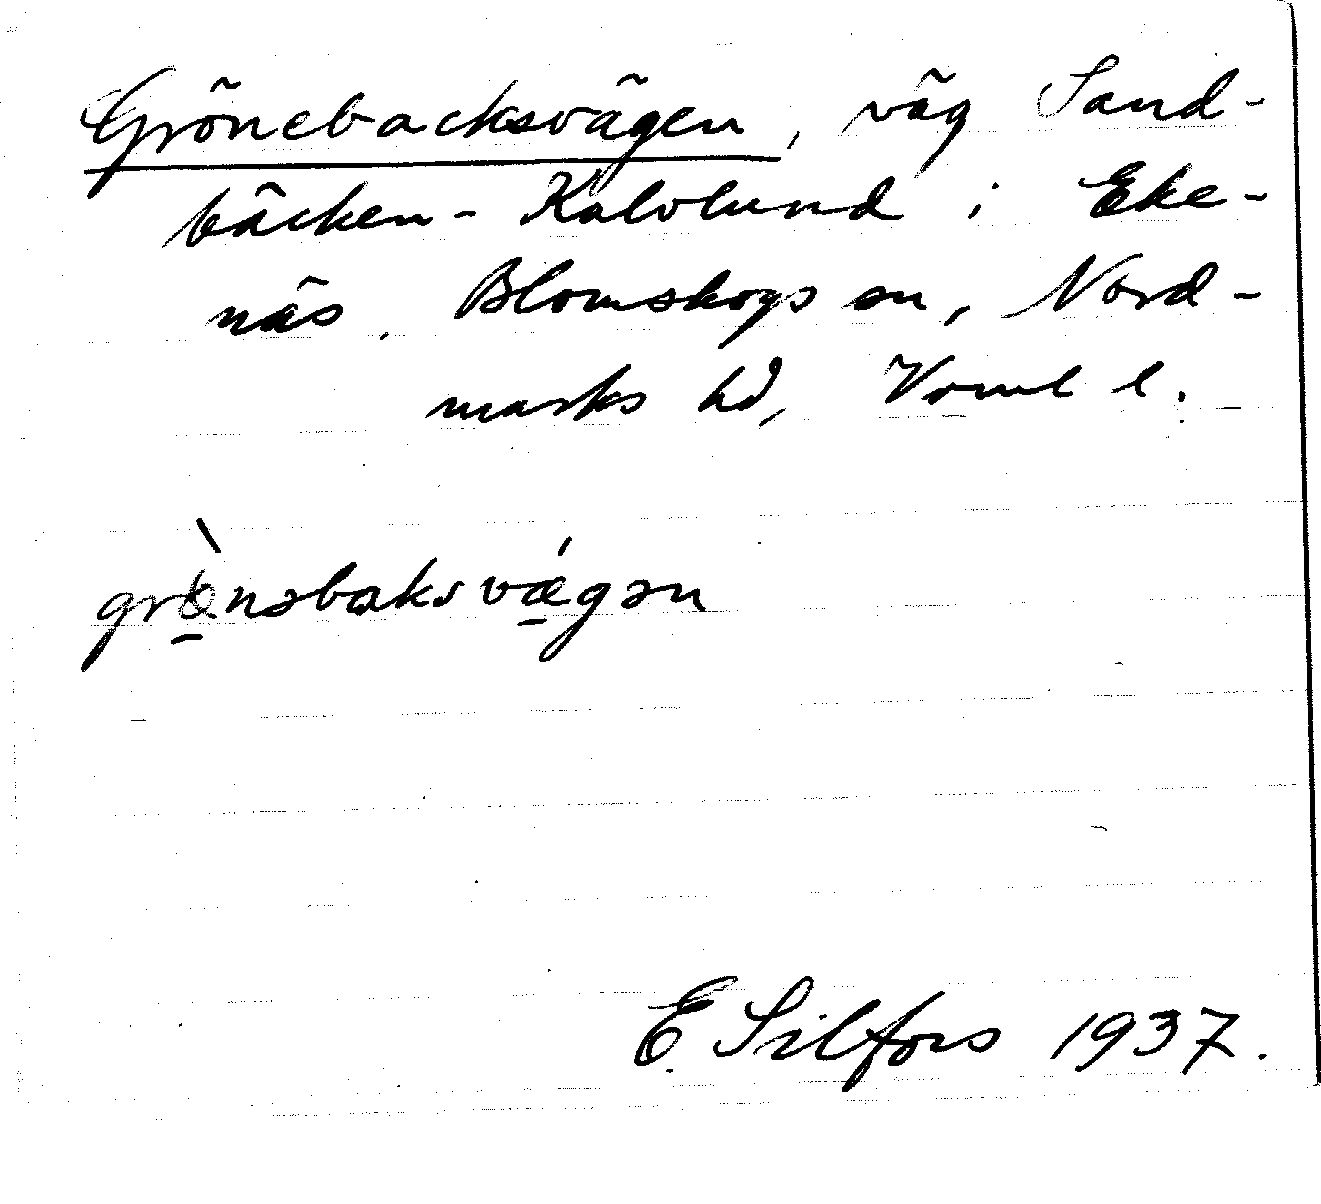 Grönebacksvägen, väg Sand-
bäcken - Kalvlund i Eke-
näs. Blomskogs sn, Nord-
marks hd, Vrml l.
grö̀nəbaksvǽgən
E Silfors 1937.